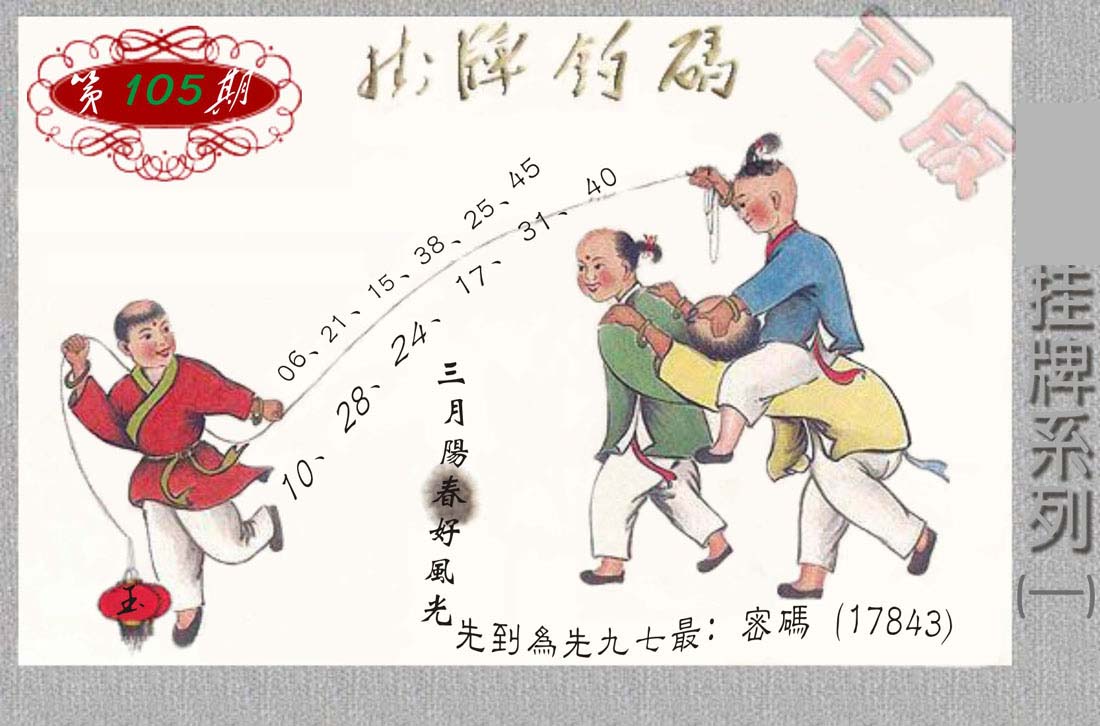 第105期
掛牌釣碼
正版
06、21、15、38、25、45
10、28、24、17、31、40
三月陽春好風光
玉
先到為先九七最：密碼 (17843)
挂牌系列(一)